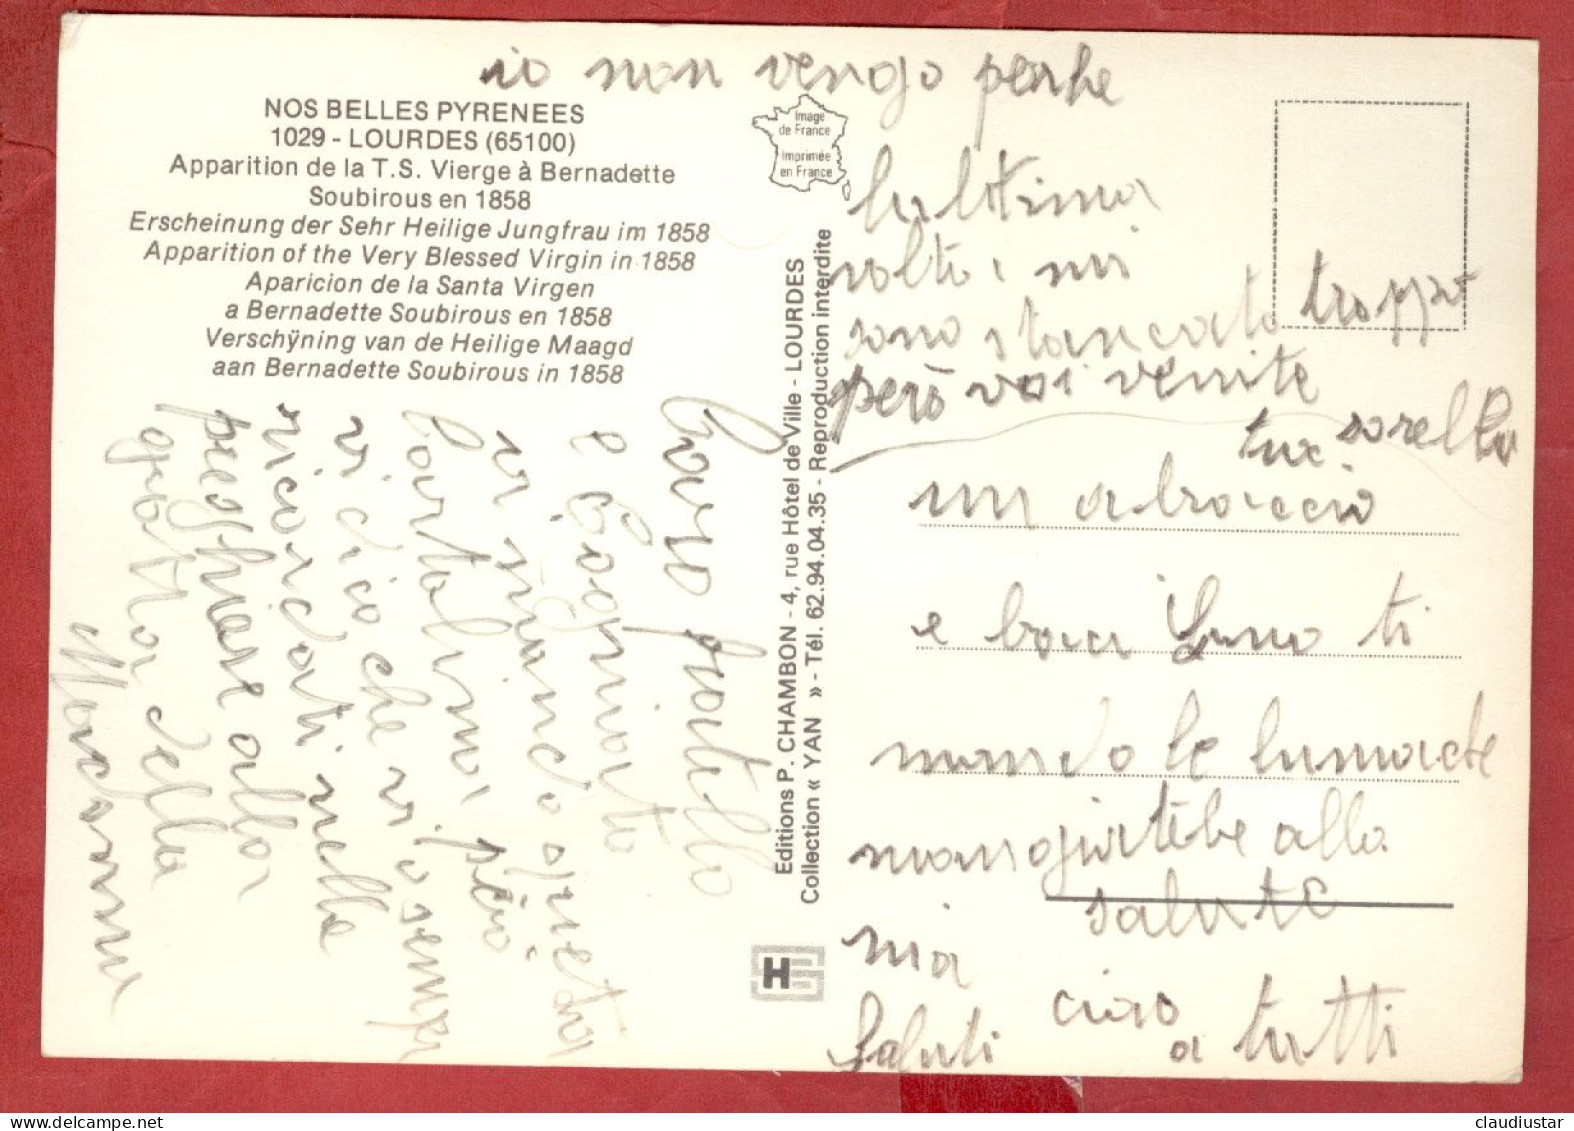 NOS BELLES PYRENEES
1029 - LOURDES (65100)
Apparition de la T.S. Vierge à Bernadette
Soubirous en 1858
Erscheinung der Sehr Heilige Jungfrau im 1858
Apparition of the Very Blessed Virgin in 1858
Aparicion de la Santa Virgen
a Bernadette Soubirous en 1858
Verschÿning van de Heilige Maagd
aan Bernadette Soubirous in 1858
Image
de France
Imprimée
en France
Editions P. CHAMBON - 4, rue Hôtel de Ville - LOURDES
Collection « YAN » - Tél. 62.94.04.35 - Reproduction interdite
Caro fratello
e Cogniato
vi mando questa
cartolina, però
vi dico che vi o sempr
ricordati nelle
preghiare alla
grotta della
Madonna
io non vengo perche
lultima
volta mi
sono stancata troppo
però voi venite
tua sorella
un abraccio
e baci ti
mando le lumache
mangiatebe alla
mia salute
Saluti ciao a tutti
claudiustar